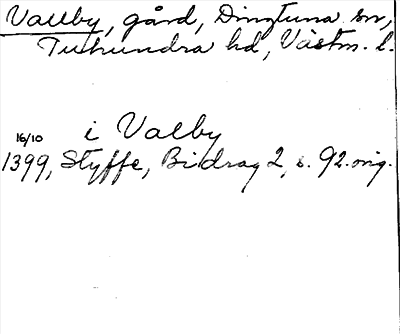 Vallby, gård, Dingtuna sn,
Tuhundra hd, Västm. l.
i Valby
16/10
1399, Styffe, Bidrag 2, s. 92. orig.